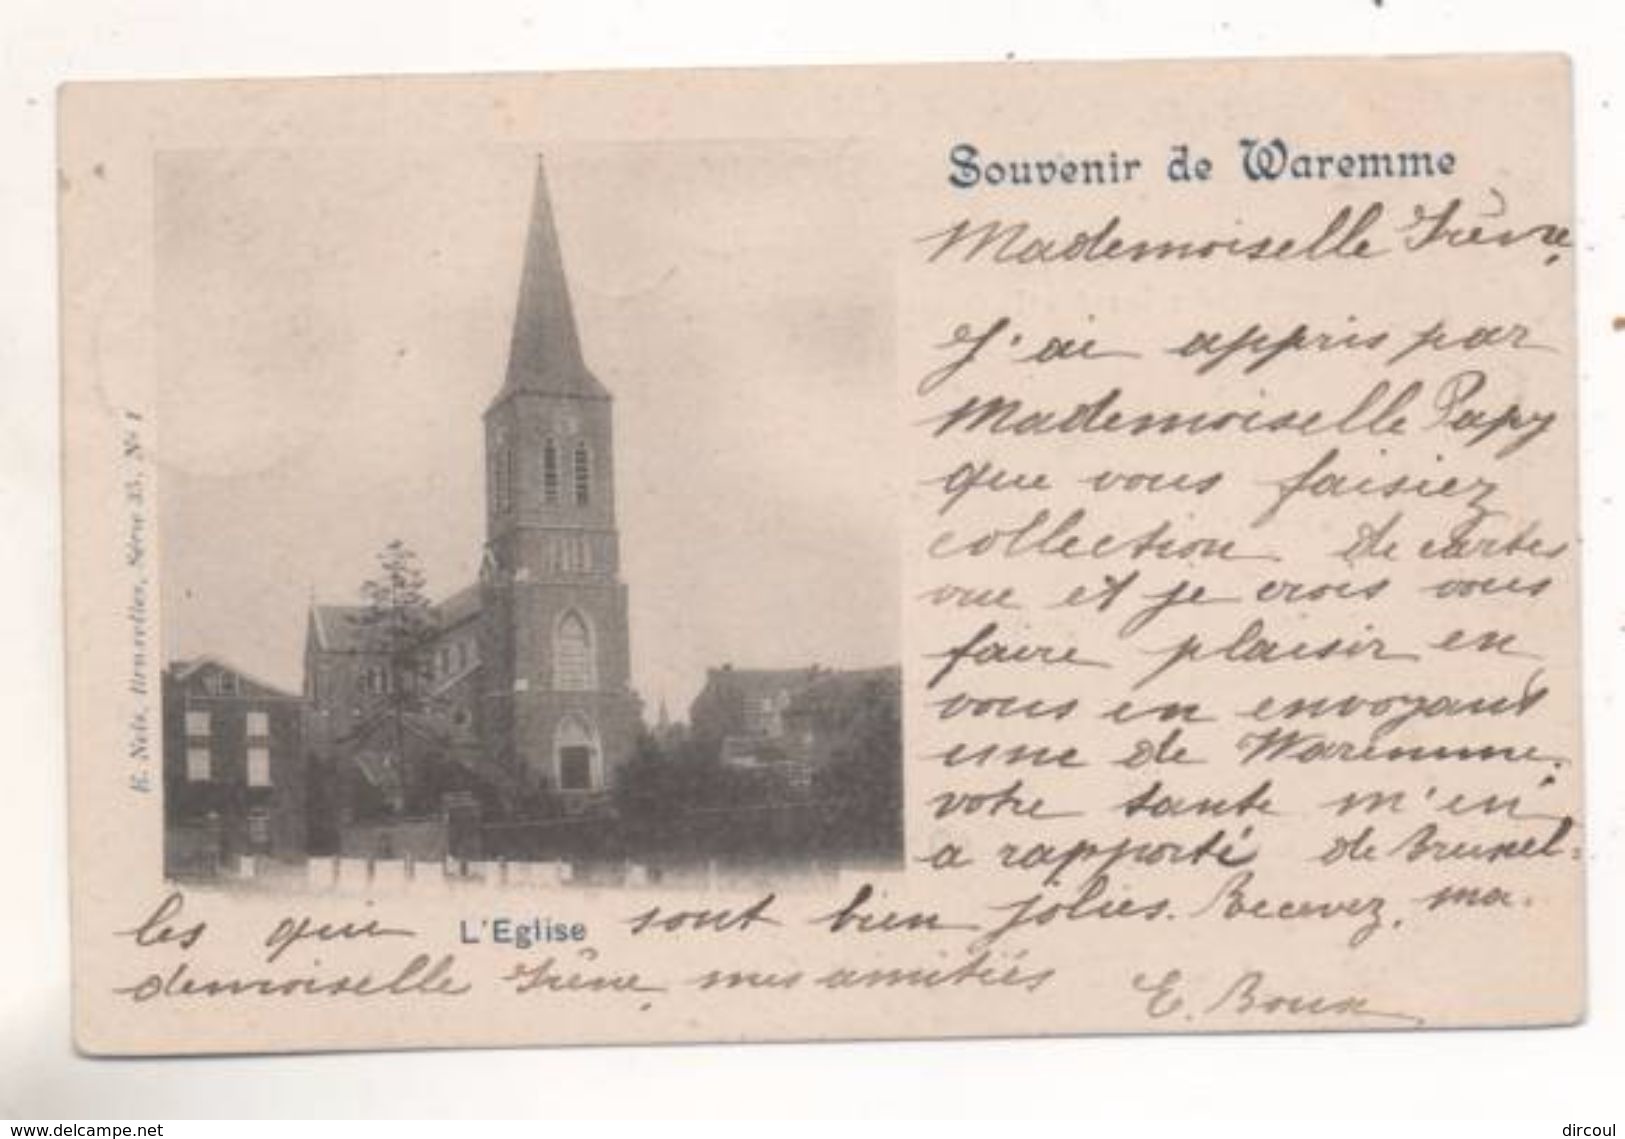 Souvenir de Waremme
Mademoiselle Irène,
J'ai appris par
Mademoiselle Papy
que vous faisiez
collection de cartes
vue et je crois vous
faire plaisir en
vous en envoyant
une de Waremme.
votre tante m'en
a rapporté de Bruxel-
les qui sont bien jolies. Recevez, ma-
L'Eglise
demoiselle Irène, mes amitiés
E. Roux
E. Nels, Bruxelles, Série 35, No 1
www.delcampe.net
dircoul